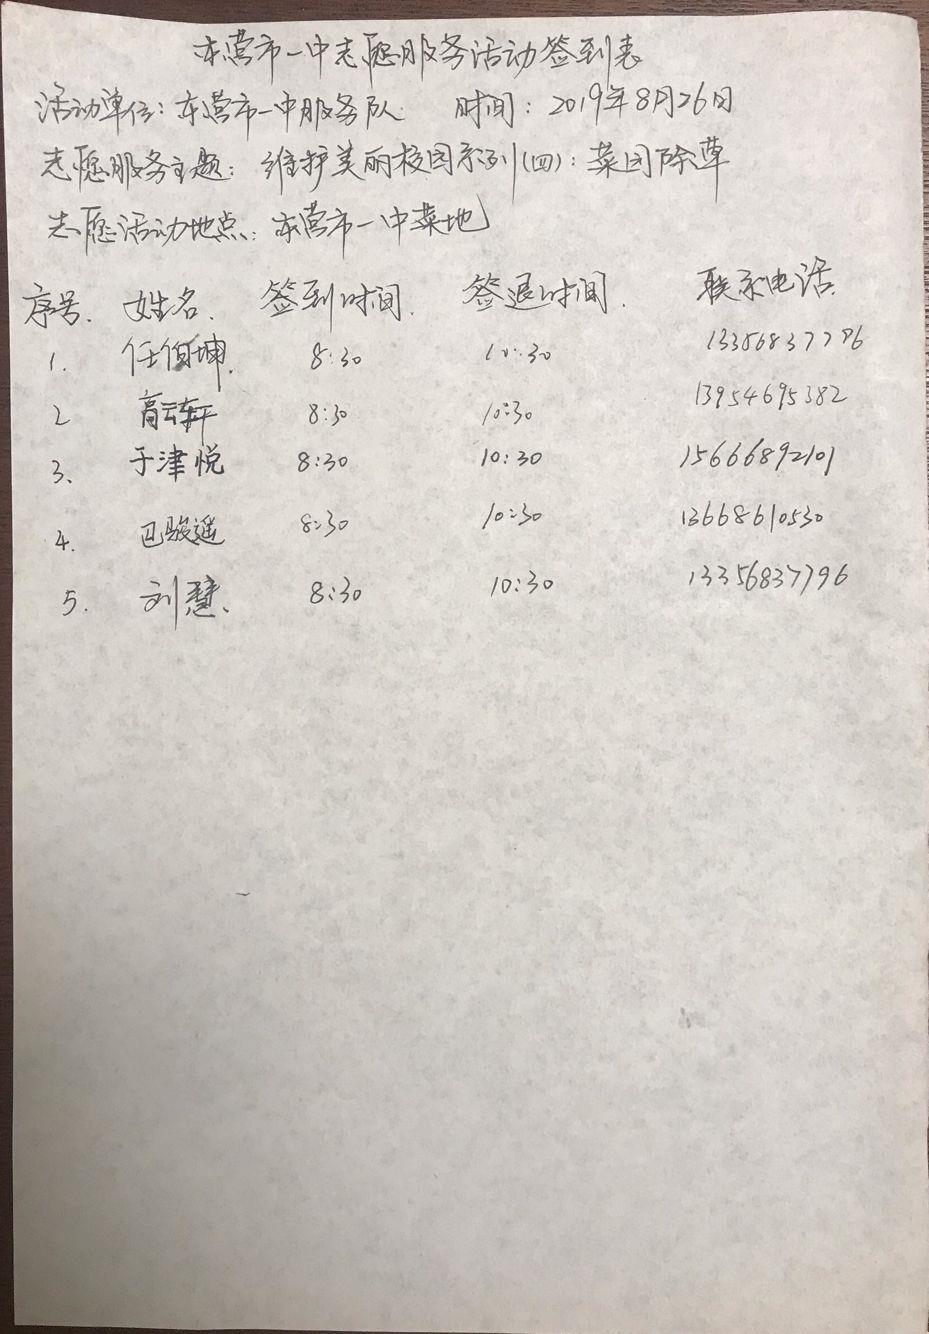 东营市一中志愿服务活动签到表
活动单位：东营市一中服务队 时间：2019年8月26日
志愿服务主题：维护美丽校园系列(四)：菜园除草
志愿活动地点：东营市一中菜地
序号. 姓名. 签到时间. 签退时间. 联系电话.
1. 任伯坤. 8:30 10:30 13356837796
2 高云轩 8:30 10:30 13954695382
3. 于津悦 8:30 10:30 15666892101
4. 巴骏遥 8:30 10:30 13668610530
5. 刘慧. 8:30 10:30 13356837796